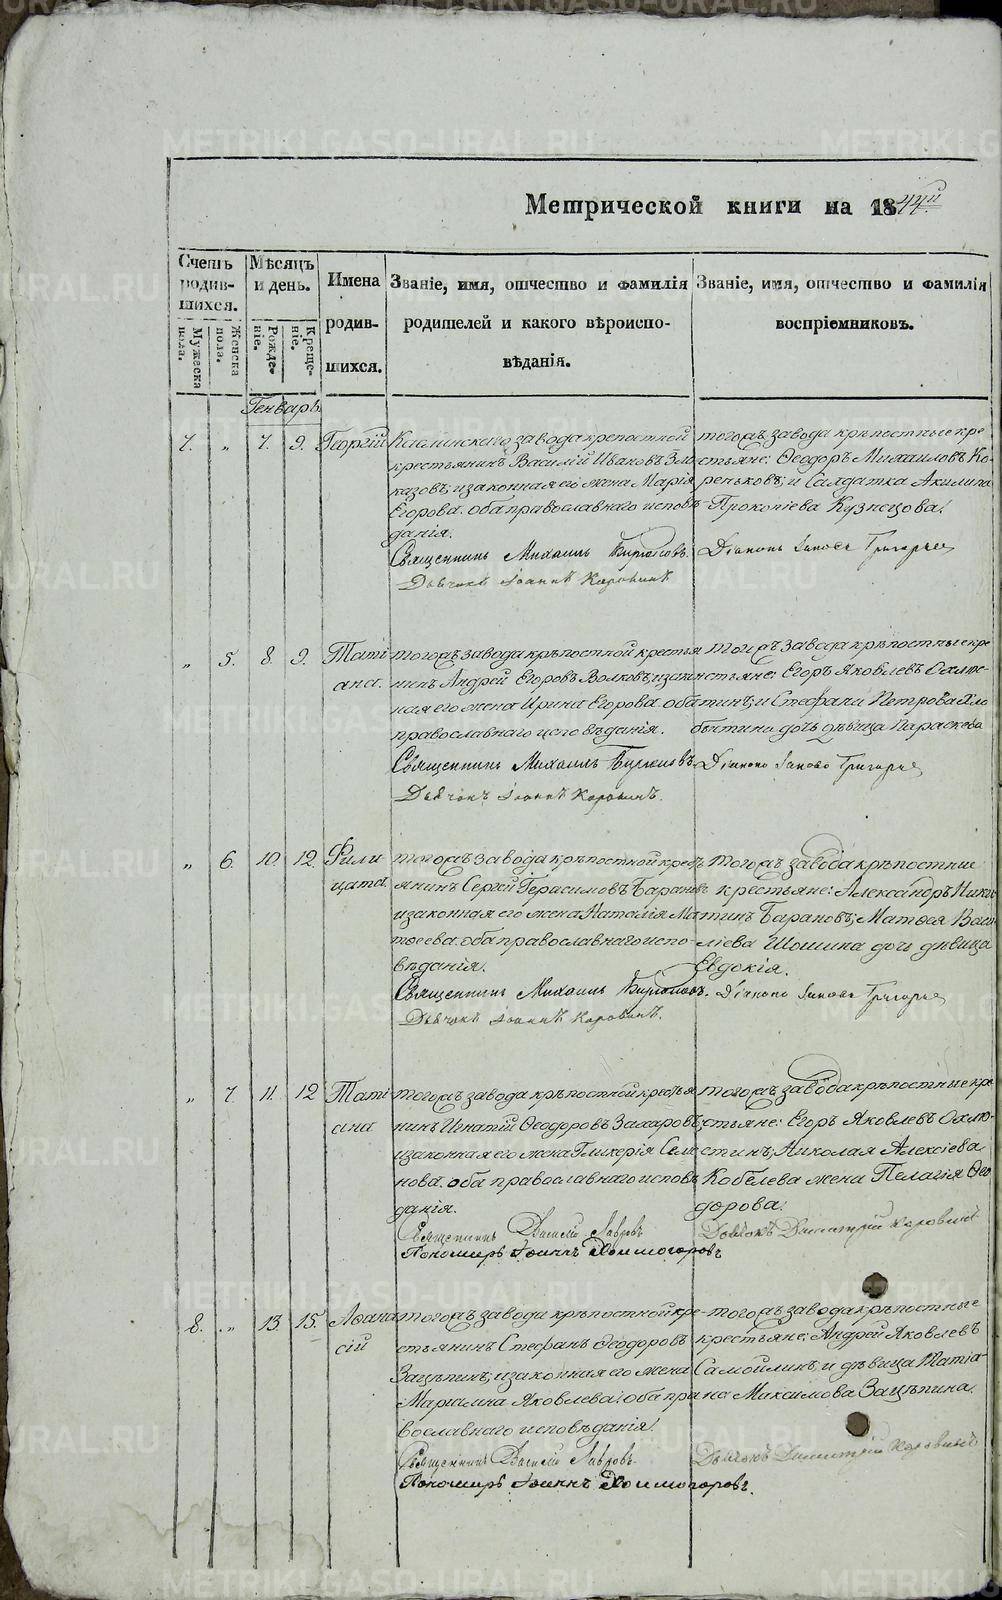 Метрической книги на 1844й
Счетъ родив-шихся.
Мужеска пола.
Женска пола.
Мѣсяцъ и день.
Рожде-ніе.
Креще-ніе.
Имена родив-шихся.
Званіе, имя, отчество и фамилія
родителей и какого вѣроиспо-
вѣданія.
Званіе, имя, отчество и фамилія
воспріемниковъ.
Генварь
7. „ 7. 9. Георгій
Каслинского завода крепостной
крестьянинъ Василій Ивановъ Зло
казовъ; и законная его жена Марія
Егорова. оба православнаго исповѣ
данія.
Священникъ Михаилъ Бирюковъ.
Дьячокъ Іоаннъ Коровинъ
тогожъ завода крѣпостные кре
стьяне: Ѳеодоръ Михаиловъ Ко
реньковъ; и Салдатка Акилина
Прокопіева Кузнецова.
Діаконъ Іаковъ Григорьев
„ 5. 8. 9. Тати
ана.
тогожъ завода крѣпостной крестья
нинъ Андрей Егоровъ Волковъ; и закон
ная его жена Ирина Егорова. оба
православнаго исповѣданія.
Священникъ Михаилъ Бирюковъ
Дьячокъ Іоаннъ Коровинъ.
тогожъ завода крѣпостные кре
стьяне: Егоръ Яковлевъ Охлю
стинъ; и Стефана Петрова Хло
быстина дочь дѣвица Параскева
Діаконъ Іаковъ Григорьев
„ 6. 10. 12. Фили
цата.
тогожъ завода крѣпостной кресть
янинъ Сергей Герасимовъ Барановъ
и законная его жена Наталія Мат
ѳеева. оба православнаго испо-
вѣданія.
Священникъ Михаилъ Бирюковъ.
Дьячокъ Іоаннъ Коровинъ.
тогожъ завода крѣпостные
крестьяне: Александръ Ники
тинъ Барановъ; Матѳея Васи
ліева Шошина дочь дѣвица
Евдокія.
Діаконъ Іаковъ Григорьев
„ 7. 11. 12 Тати
ана
тогожъ завода крѣпостной крестья
нинъ Игнатій Ѳеодоровъ Захаровъ;
и законная его жена Гликерія Семе
нова. оба православнаго исповѣ
данія.
Священникъ Василій Лавровъ
Пономарь Іоаннъ Холмогоровъ
тогожъ завода крѣпостные кре
стьяне: Егоръ Яковлевъ Охлю-
стинъ; Николая Алексіева
Кобелева жена Пелагія Ѳео
дорова.
Дьячокъ Димитрій Коровинъ
8. „ 13. 15. Аѳана
сій
тогожъ завода крѣпостной кре-
стьянинъ Стефанъ Ѳеодоровъ
Зацѣпинъ; и законная его жена
Маріамна Яковлева. оба пра
вославнаго исповѣданія.
Священникъ Василій Лавровъ
Пономарь Іоаннъ Холмогоровъ.
тогожъ завода крѣпостные
крестьяне: Андрей Яковлевъ
Самойлинъ; и дѣвица Татіа-
на Максимова Зацѣпина.
Дьячокъ Димитрій Коровинъ
METRIKI.GASO-URAL.RU